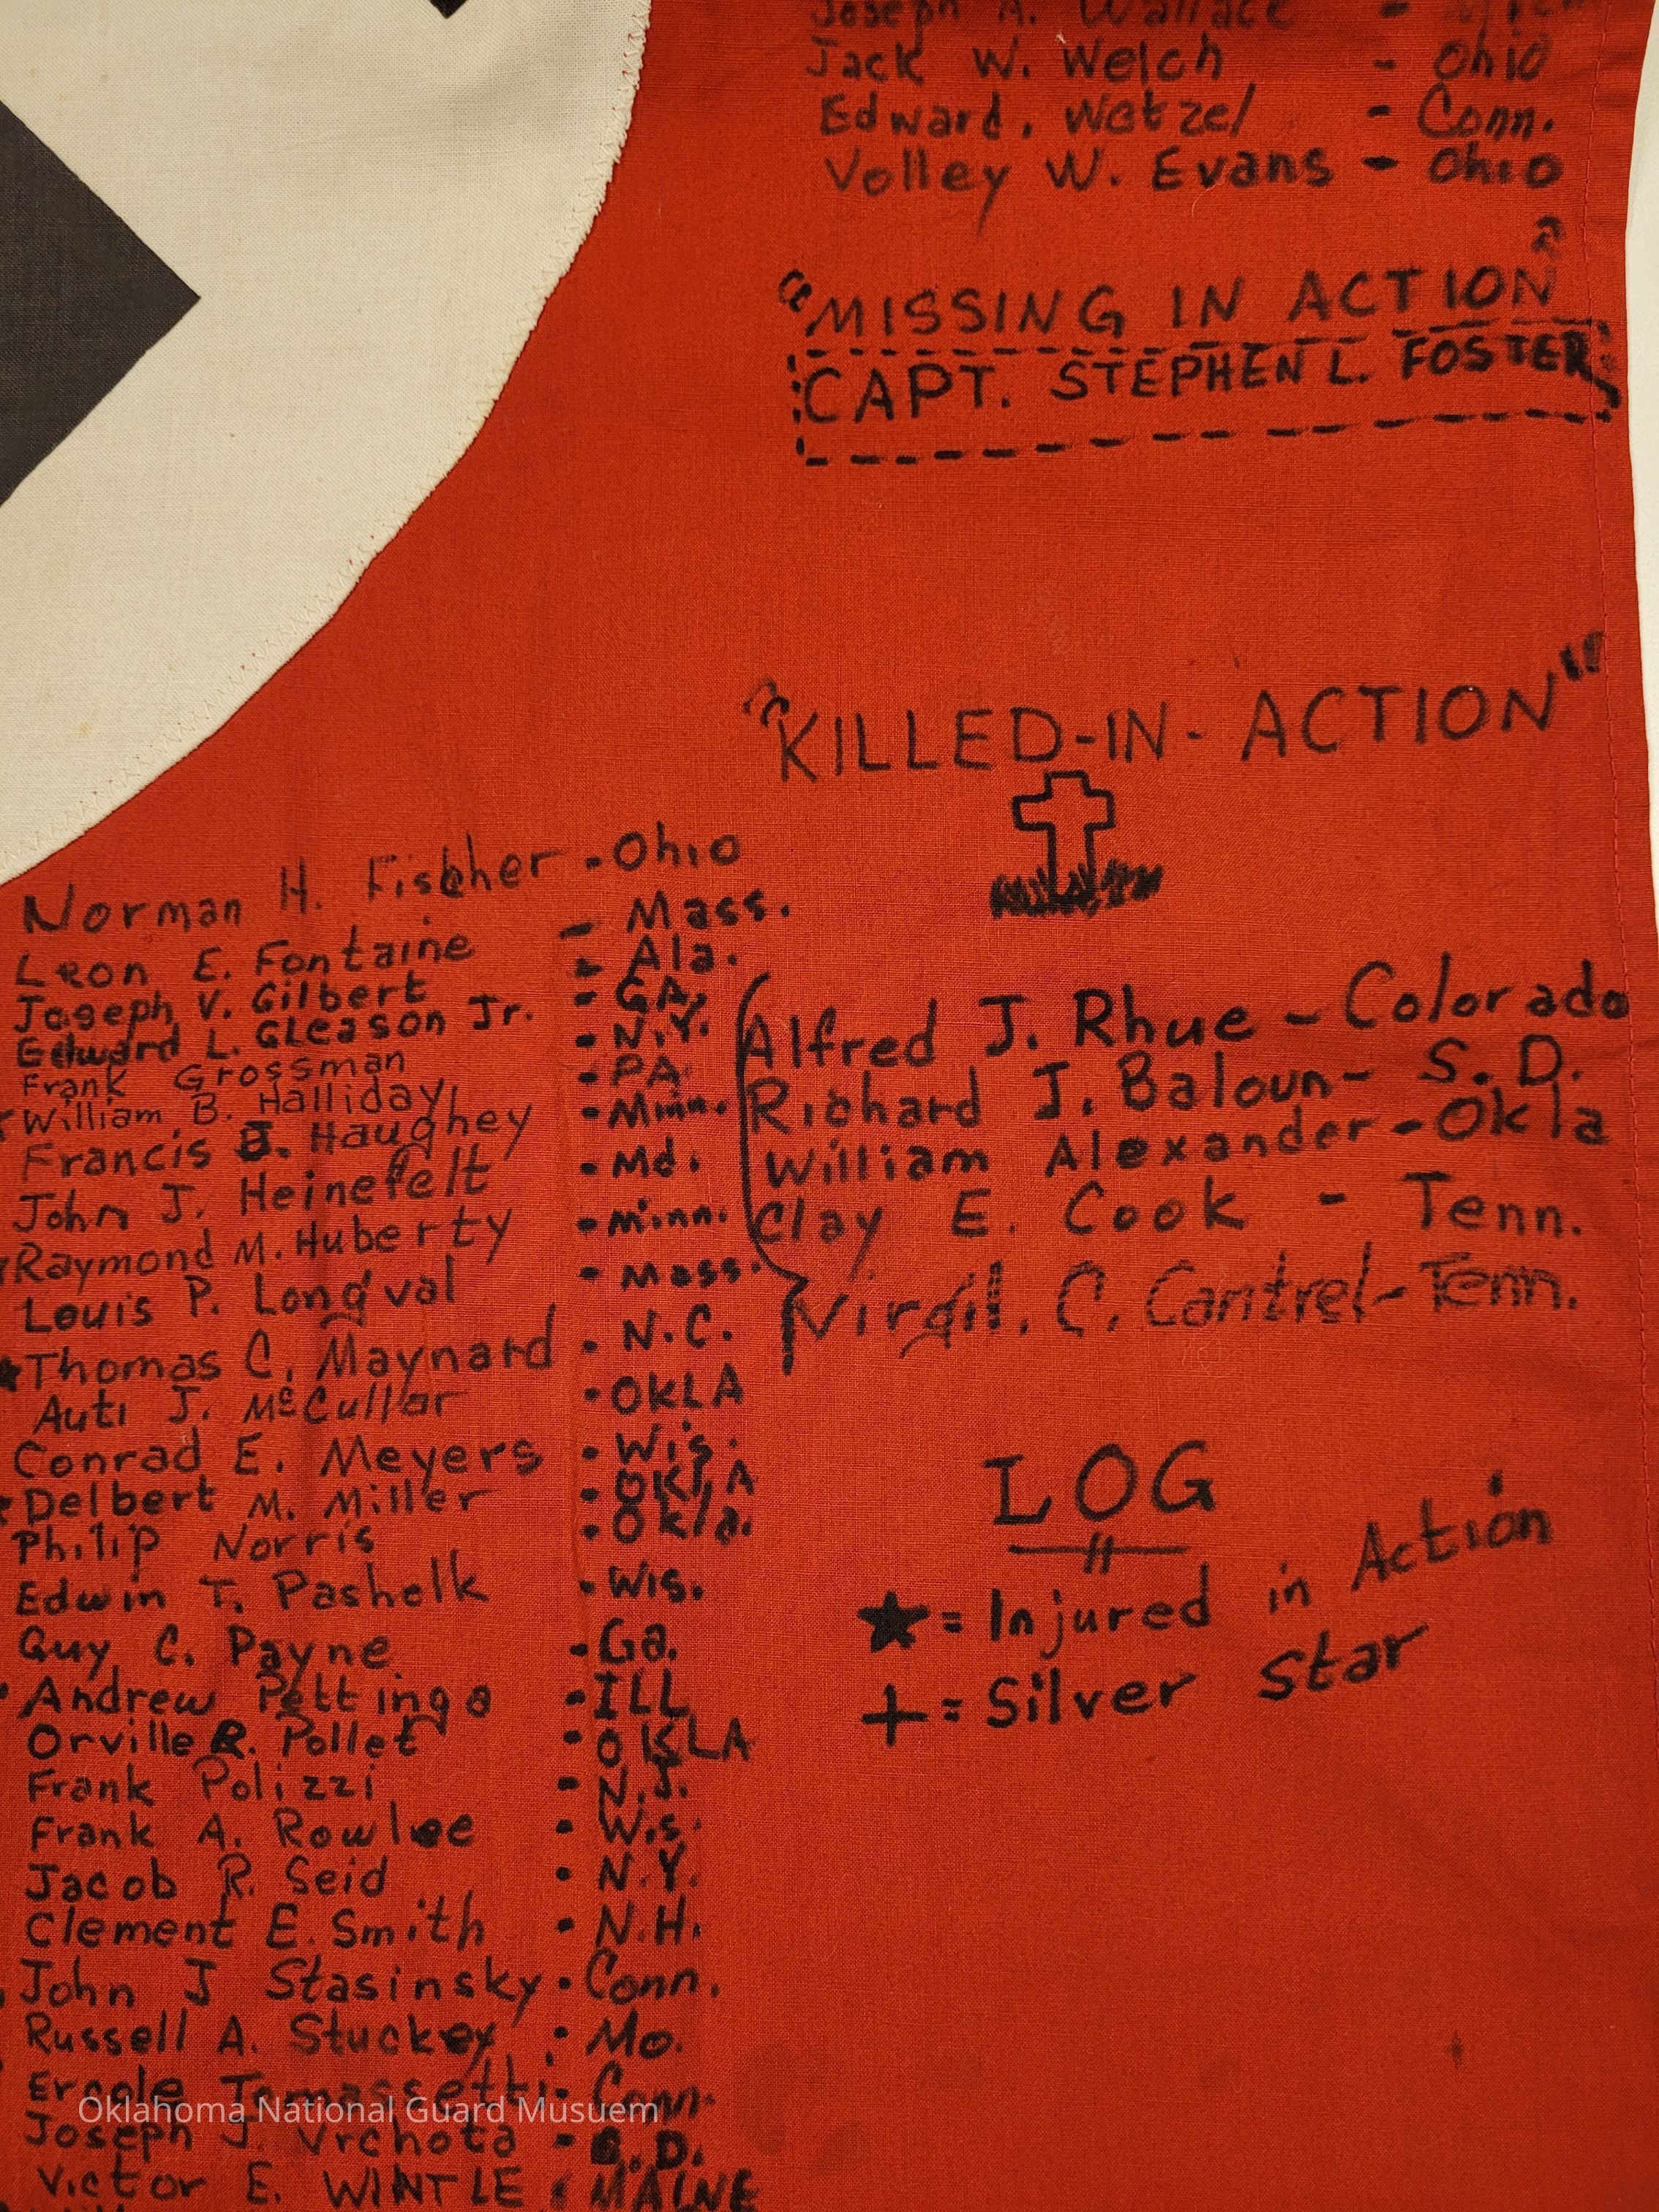 Joseph A. Wallace -
Jack W. Welch - Ohio
Edward. Wetzel - Conn.
Volley W. Evans - Ohio
"MISSING IN ACTION"
CAPT. STEPHEN L. FOSTER
"KILLED-IN-ACTION"
Alfred J. Rhue - Colorado
Richard J. Baloun - S. D.
William Alexander - Okla
Clay E. Cook - Tenn.
Virgil. C. Cantrel - Tenn.
LOG
★ = Injured in Action
+ = Silver Star
Norman H. Fischer - Ohio
Leon E. Fontaine - Mass.
Joseph V. Gilbert - Ala.
Edward L. Gleason Jr. - GA.
Frank Grossman - N.Y.
William B. Halliday - PA
Francis J. Haughey - Minn.
John J. Heinefelt - Md.
Raymond M. Huberty - Minn.
Louis P. Longval - Mass.
★ Thomas C. Maynard - N.C.
Auti J. McCullar - OKLA
Conrad E. Meyers - Wis.
Delbert M. Miller - OKLA
Philip Norris - Okla.
Edwin T. Pashelk - Wis.
Guy C. Payne - Ga.
Andrew Pettinga - ILL
Orville R. Pollet - OKLA
Frank Polizzi - N.J.
Frank A. Rowlee - Wis.
Jacob R. Seid - N.Y.
Clement E. Smith - N.H.
John J Stasinsky - Conn.
Russell A. Stuckey - Mo.
Ercole Tomassetti - Conn.
Joseph J. Vrchota - S.D.
Victor E. WINTLE - MAINE
Oklahoma National Guard Musuem